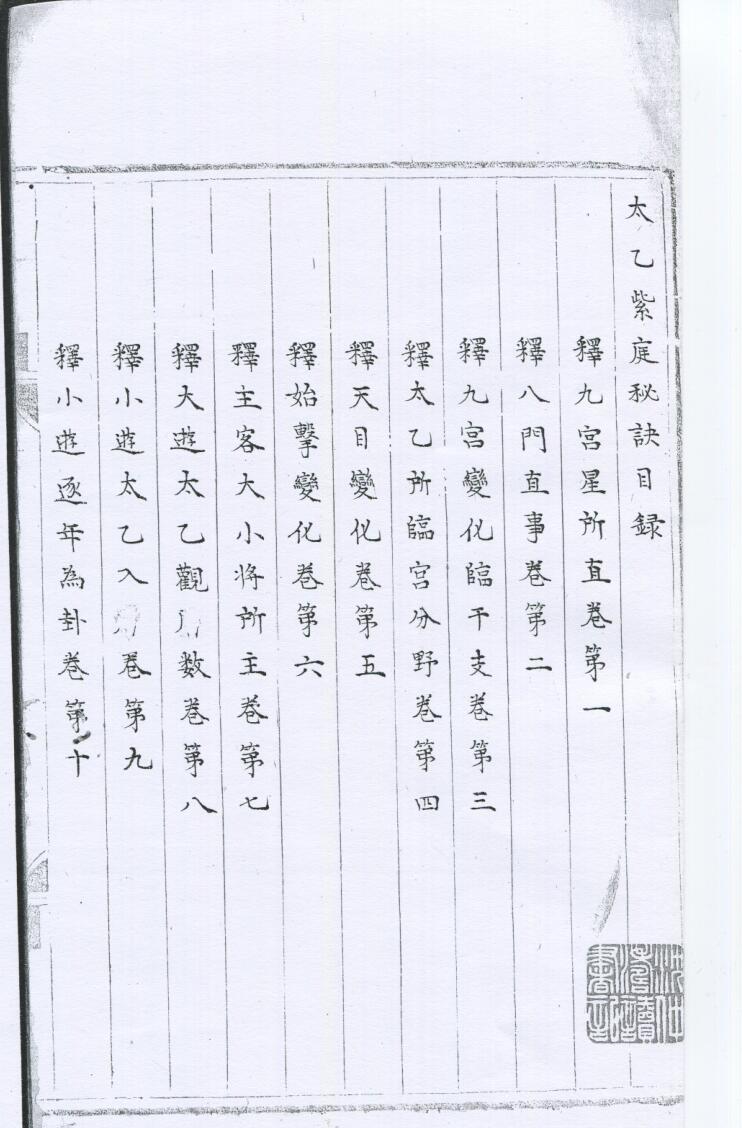 太乙紫庭秘訣目録
釋九宮星所直卷第一
釋八門直事卷第二
釋九宮變化臨干支卷第三
釋太乙所臨宮分野卷第四
釋天目變化卷第五
釋始擊變化卷第六
釋主客大小將所主卷第七
釋大遊太乙觀數卷第八
釋小遊太乙入卷第九
釋小遊逐年為卦卷第十